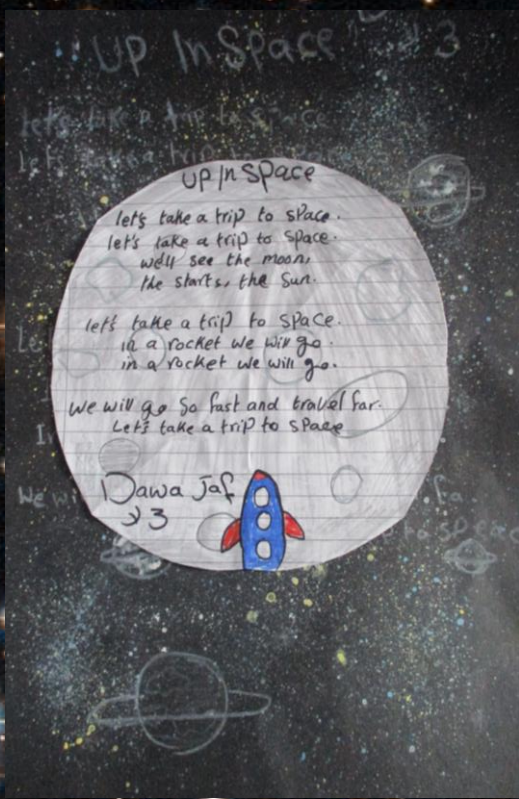 UP In Space
y3
let's take a trip to space
let's take a trip to space
UP In Space
let's take a trip to space.
let's take a trip to space.
we'll see the moon,
the starts, the Sun.
let's take a trip to space.
in a rocket we will go.
in a rocket we will go.
we will go so fast and travel far.
Let's take a trip to space
Dawa Jaf
y3